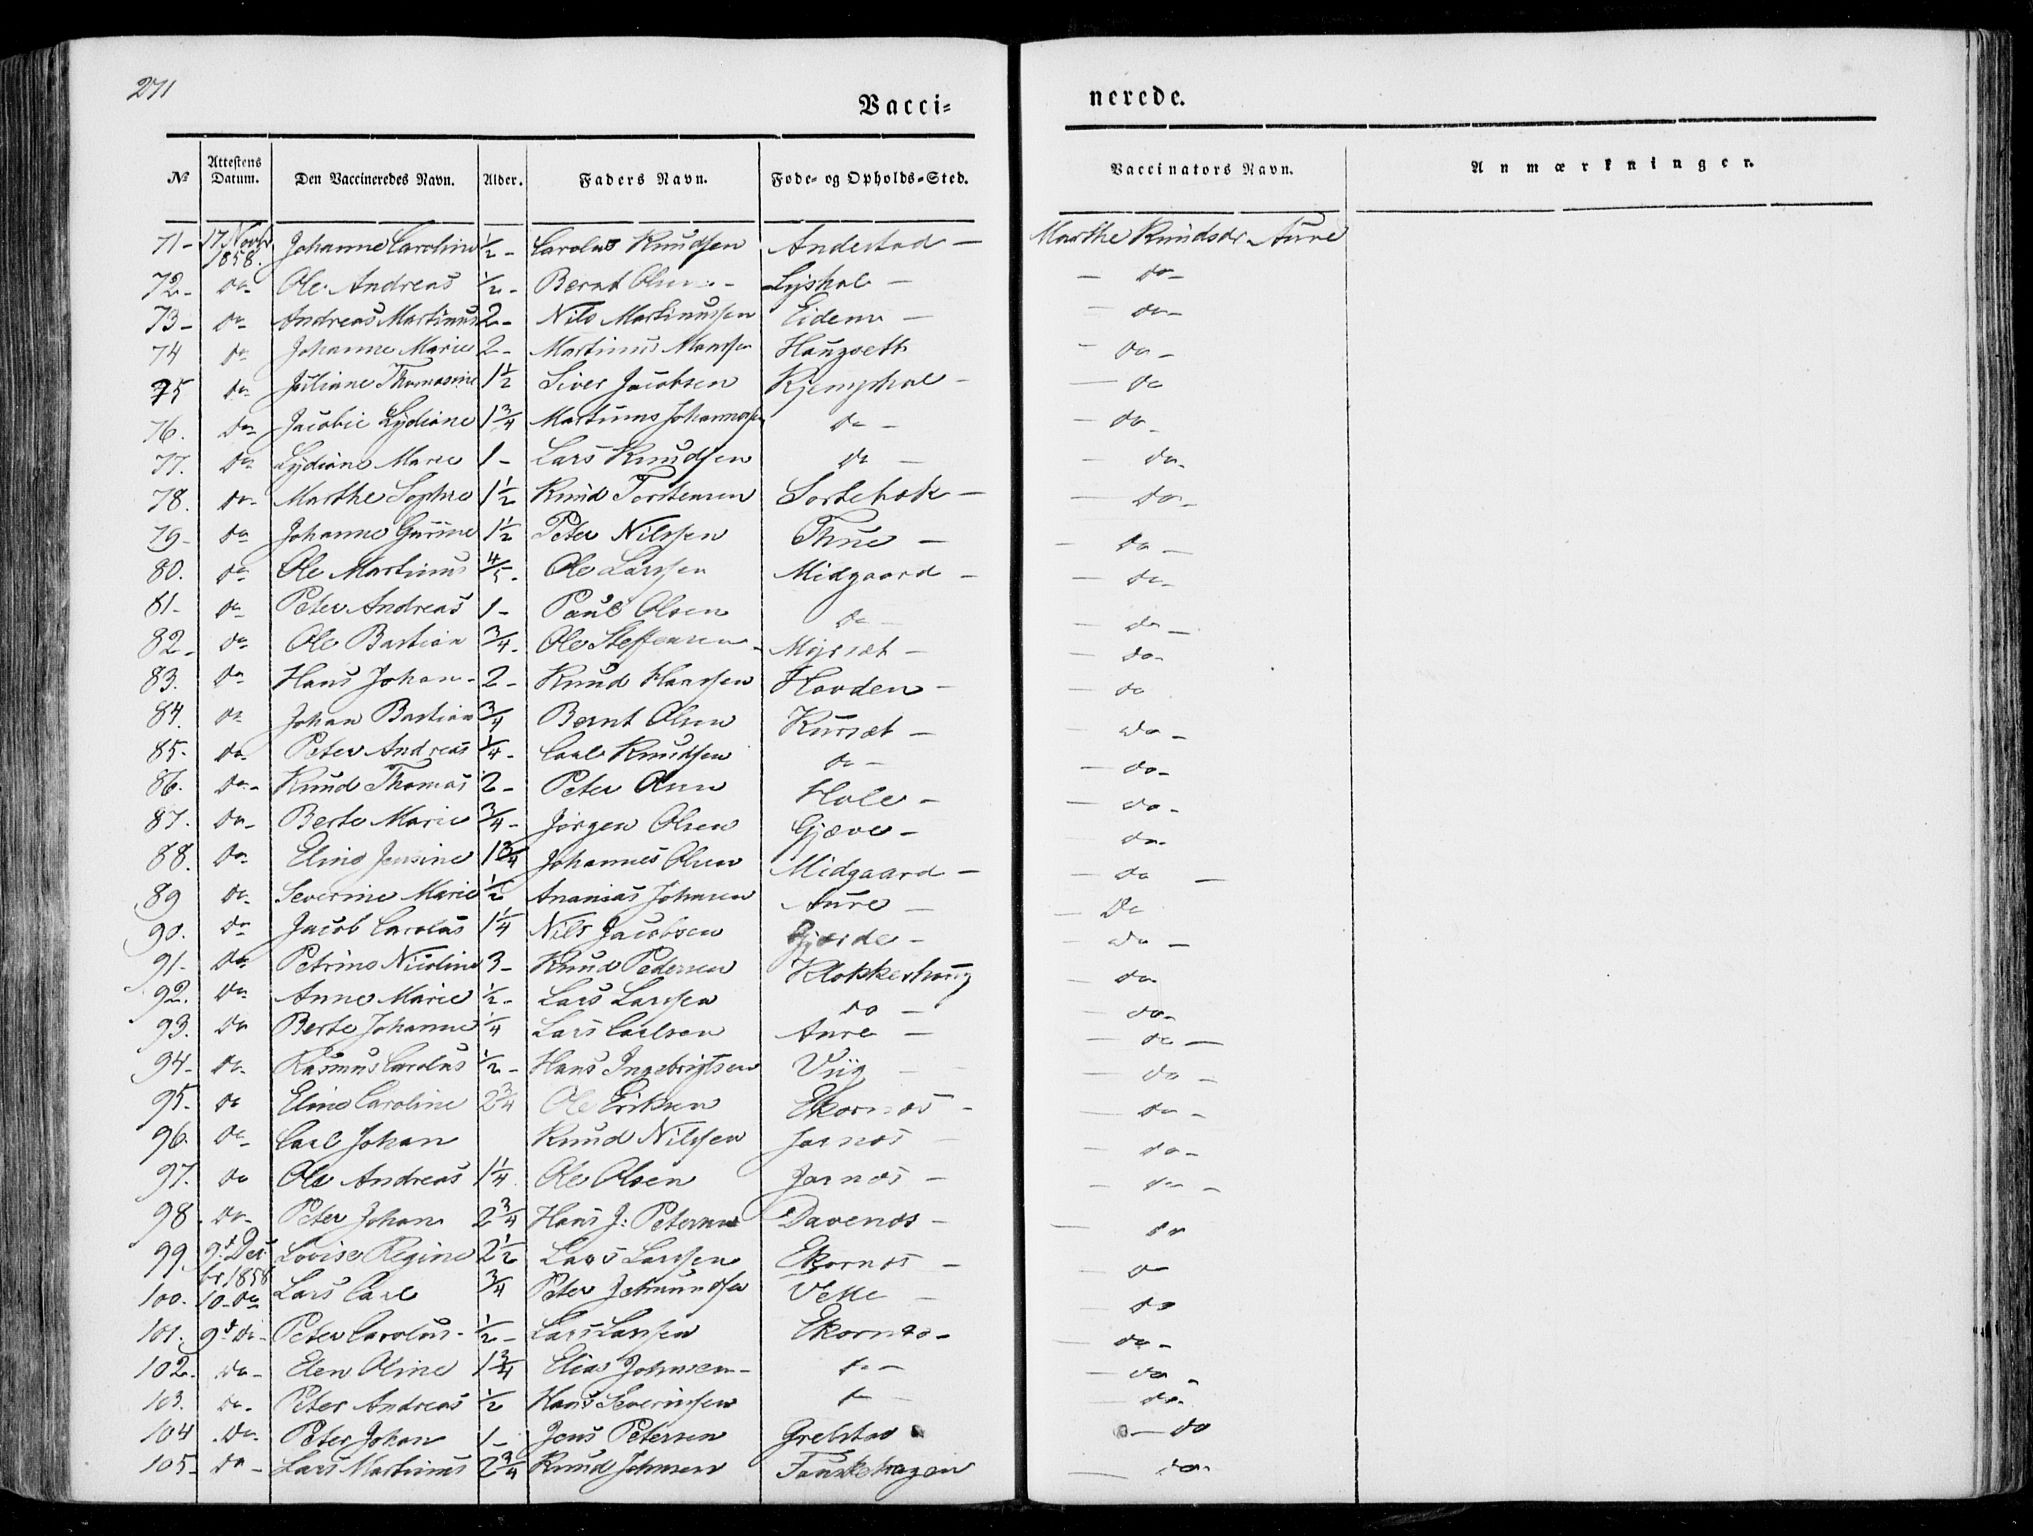 271
Vacci= nerede.
No Attestens Datum. Den Vaccineredes Navn. Alder. Faders Navn. Føde- og Opholds-Sted. Vaccinators Navn. Anmærkninger.
71- 17 Novbr 1858. Johanne Caroline 1/2- Carolus Knudsen Andestad - Marthe Knudsdr. Aure
72- do- Ole Andreas 1/2- Bernt Olsen - - do-
73- do- Andreas Martinus 2- Nils Martinussen Eidem - - do-
74 do- Johanne Marie 2- Martinus - do-
75 do- Juliane Thomasine 1 1/2 Siver Jacobsen - - do
76. do- Jacobie Lydiane 1 3/4 Martinus Johannessen do - - do-
77. do- Lydiane Marie 1- Lars Knudsen do - - do-
78. do- Marthe Sophie 1 1/2 Knud Torstensen Sortebæk - - do-
79- do Johanne Gurine 1 1/2 Peter Nilssen Thue - - do-
80. do- Ole Martinus 4/5- Ole Larssen Midgaard - - do-
81- do- Peter Andreas 1- Paul Olsen do - - do-
82- do- Ole Bastian 3/4- Ole Steffensen - Myrsæt - - do-
83. do- Hans Johan- 2- Knud Hanssen Hovden - - do
84. do- Johan Bastian 3/4 Bernt Olsen Kursæt - - do-
85- do- Peter Andreas 1/4- Carl Knudsen do - - do-
86. do- Knud Thomas 2- Peter Olsen Hole - - do-
87. do- Berte Marie 3/4- Jørgen Olsen Gjæve - - do-
88. do- Eline Jensine 1 3/4 Johannes Olsen Midgaard - - do -
89 do- Severine Marie 1/2 Ananias Johnsen Aure - - Do
90. do- Jacob Carolus 1 1/4 Nils Jacobsen Gjærde - - do-
91- do- Petrine Nicoline 3- Knud Pedersen Klokkerhoug - do-
92. do- Anne Marie 1/2- Lars Larssen do - - do-
93. do Berte Johanne 1/4 Lars Carlsen Aure - - do-
94- do- Rasmus Carolus 1/2- Hans Ingebrigtsen Viig - - do -
95- do Eline Caroline 2 3/4 Ole Eriksen Ekornæs - - do-
96. do- Carl Johan Knud Nilssen Jarnæs - - do-
97. do Ole Andreas 1 1/4 Ole Olsen Jarnæs - - do -
98. do- Peter Johan 2 3/4 Hans J: Petersen Davenæs - - do
99. 9d Decbr. 1858 Lovise Regine 2 1/2 Lars Larssen Ekornæs - - do
100. 10- do Lars Carl 3/4 Peter Jetmundsen Velle - - do
101. 9d do- Peter Carolus- 1/2- Lars Larssen Ekornæs- - do-
102. do- Elen Oline 1 3/4 Elias Johnsen - do - - do-
103. do- Peter Andreas 1/2 Hans Severinssen do - - do-
104. Do- Peter Johan 1- Jens Petersen Grebstad - do
105- do- Lars Martinus 2 3/4 Knud Johnsen Fauskehagen - do-